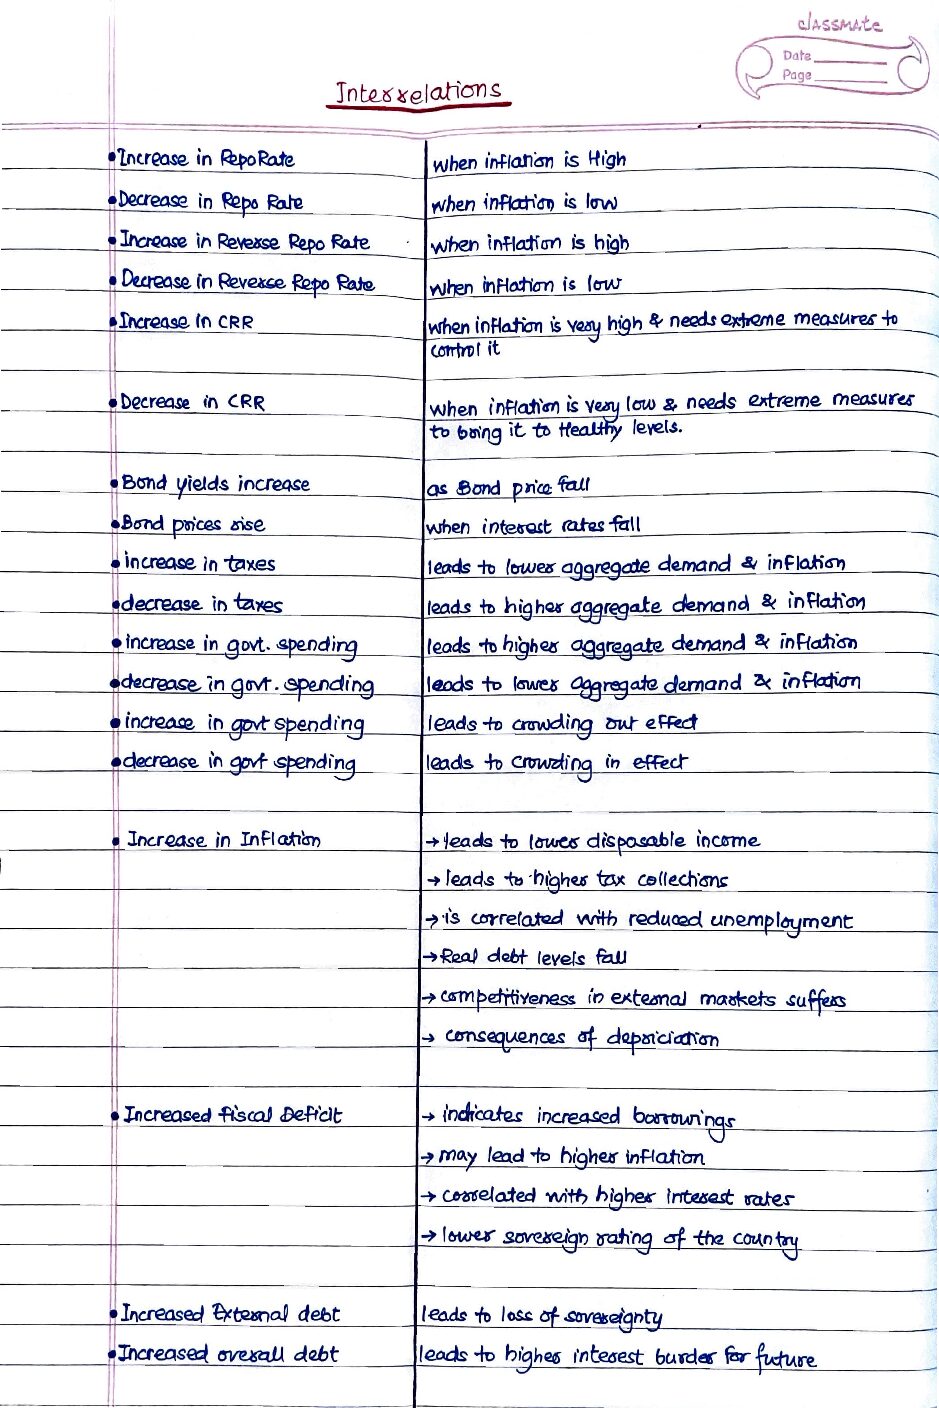 classmate
Date
Page
Interrelations
• Increase in Repo Rate when inflation is High
• Decrease in Repo Rate when inflation is low
• Increase in Reverse Repo Rate when inflation is high
• Decrease in Reverse Repo Rate when inflation is low
• Increase in CRR when inflation is very high & needs extreme measures to
control it
• Decrease in CRR when inflation is very low & needs extreme measures
to bring it to Healthy levels.
• Bond yields increase as Bond price fall
• Bond prices rise when interest rates fall
• increase in taxes leads to lower aggregate demand & inflation
• decrease in taxes leads to higher aggregate demand & inflation
• increase in govt. spending leads to higher aggregate demand & inflation
• decrease in govt. spending leads to lower aggregate demand & inflation
• increase in govt spending leads to crowding out effect
• decrease in govt spending leads to crowding in effect
• Increase in Inflation → leads to lower disposable income
→ leads to higher tax collections
→ is correlated with reduced unemployment
→ Real debt levels fall
→ competitiveness in external markets suffers
→ consequences of depriciation
• Increased fiscal Deficit → indicates increased borrowings
→ may lead to higher inflation
→ correlated with higher interest rates
→ lower sovereign rating of the country
• Increased External debt leads to loss of sovereignty
• Increased overall debt leads to higher interest burder for future